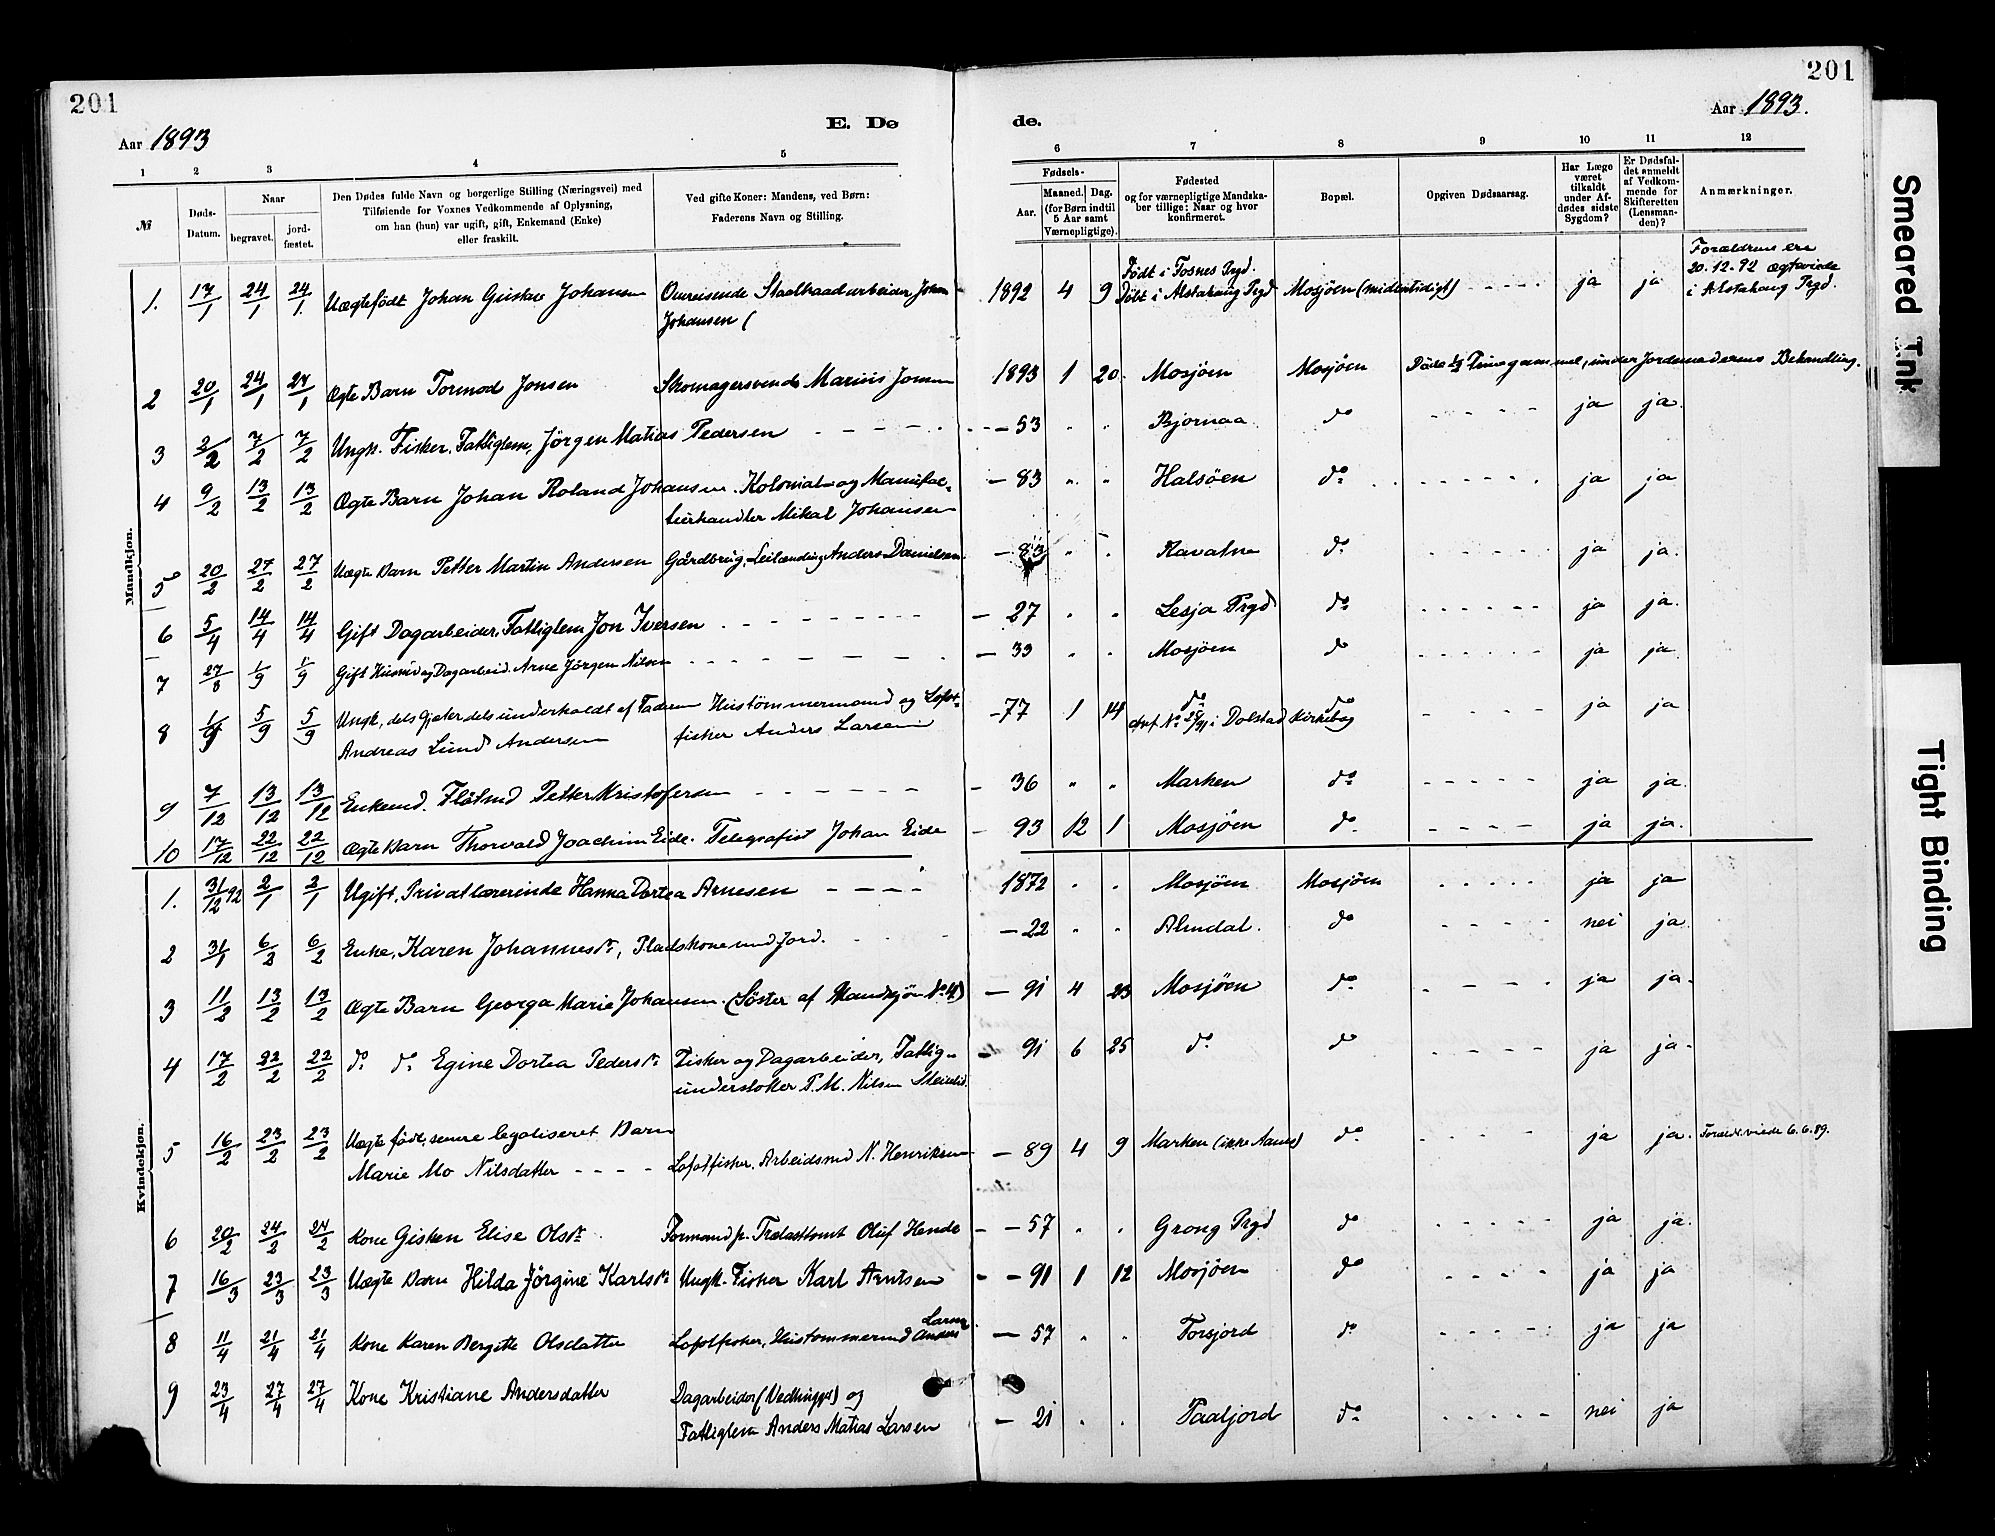 201
201
Aar 1893
E. Dø
de.
Aar 1893.
1 2 3 4 5 6 7 8 9 10 11 12
№
Døds-
Datum.
Naar
begravet.
jord-
fæstet.
Den Dødes fulde Navn og borgerlige Stilling (Næringsvei) med
Tilføiende for Voxnes Vedkommende af Oplysning,
om han (hun) var ugift, gift, Enkemand (Enke)
eller fraskilt.
Ved gifte Koner: Mandens, ved Børn:
Faderens Navn og Stilling.
Fødsels-
Aar.
Maaned. Dag.
(for Børn indtil
5 Aar samt
Værnepligtige).
Fødested
og for værnepligtige Mandska-
ber tillige: Naar og hvor
konfirmeret.
Bopæl.
Opgiven Dødsaarsag.
Har Læge
været
tilkaldt
under Af-
dødes sidste
Sygdom?
Er Dødsfal-
det anmeldt
af Vedkom-
mende for
Skifteretten
(Lensman-
den)?
Anmærkninger.
Mandkjøn.
Forældrene ere
20.12.92 Ægteviede
i Alstahaug Prgd.
Født i Fosnes Prgd.
1. 17/1 24/1 24/1 Uægtefødt Johan Gustav Johansen Omreisende Staaltraadarbeider Johan 1892 4 9 Døbt i Alstahaug Prgd Mosjøen (midlertidigt) - - - - ja ja
Johansen (
2 20/1 24/1 24/1 Ægte Barn Tormod Jonsen Skomagersvend Marius Jonsen 1893 1 20. Mosjøen Mosjøen Døde 1/2 Time gammel, under Jordemoderens Behandling.
3 2/2 7/2 7/2 Ungk. Fisker, Fattiglem, Jörgen Matias Pedersen - - - - - 53 " " Bjornaa do - - - - ja ja.
4 9/2 13/2 13/2 Ægte Barn Johan Roland Johansen. Kolonial- og Manufac- - 83 " " Halsöen do - - - - - ja ja
turhandler Mikal Johansen
5 20/2 27/2 27/2 Uægte Barn Petter Martin Andersen Gårdbrug. Leilænding Anders Danielsen - 83 " " do - - - - - ja ja.
6 5/4 14/4 14/4 Gift Dagarbeider, Fattiglem Jon Iversen - - - - - 27 " " Lesja Prgd do - - - - - ja ja.
7 27/8 1/9 1/9 Gift Husmd og Dagarbeid. Arne Jörgen Nilsen - - - - - 33 " " Mosjöen do - - - - - ja ja
8 1/9 5/9 5/9 Ungk, dels Gjeter dels underholdt af Faderen Hustömmermand og Lofot- - 77 1 14 do do - - - - ja ja
Andreas Lund Andersen fisker Anders Larsen i Dolstad Kirkebog
9 7/12 13/12 13/12 Enkemd. Flötmd Petter Kristofersen - - - - - 36 " " Marken do - - - - - ja ja.
10 17/12 22/12 22/12 Ægte Barn Thorvald Joachim Eide. Telegrafist Johan Eide - 93 12 1 Mosjöen do - - - - ja ja.
Kvindekjøn.
1. 31/12 92 2/1 2/1 Ugift, Privatlærerinde Hanna Dortea Arnesen - - - - 1872 " " Mosjöen Mosjöen - - - - - ja ja
2 31/1 6/2 6/2 Enke, Karen Johannesdr, Pladskone med Jord. - 22 " " Almdal. do - - - - nei ja.
3 11/2 13/2 13/2 Ægte Barn Georga Marie Johansen. (Söster af Mandkjön No 4) - 91 4 23 Mosjöen do - - - - ja ja.
4 17/2 22/2 22/2 do do Egine Dortea Pedersdr Fisker og Dagarbeider, Fattig- - 91 6 25 do do - - - - ja ja.
understöttet P. M. Nilsen
5 16/2 23/2 23/2 Uægte født, senere legaliseret Barn
Marie Mo Nilsdatter - - - - Lofotfisker, Arbeidsmd N. Henriksen - 89 4 9 Marken do - - - - - ja ja. Forældr. viede 6.6.89.
6 20/2 24/2 24/2 Kone Gisken Elise Olsdr. Formand p. Trælasttomt Oluf Hende - - 57 " " Grong Prgd do - - - - - ja ja.
7 16/3 23/3 23/3 Uægte Barn Hilda Jörgine Karlsdr Ungk. Fisker Karl Arntsen - - 91 1 12 Mosjöen do - - - - ja ja
8 11/4 21/4 21/4 Kone Karen Bergitte Olsdatter Lofotfisker, Hustømmermd Anders Larsen - 57 " " Forsjord do - - - - - ja ja
9 23/4 27/4 27/4 Kone Kristiane Andersdatter Dagarbeider (Vedhugger) og
Fattiglem Anders Matias Larsen - 21 " " Taaljord do - - - - - nei ja
Smeared Ink
Tight Binding